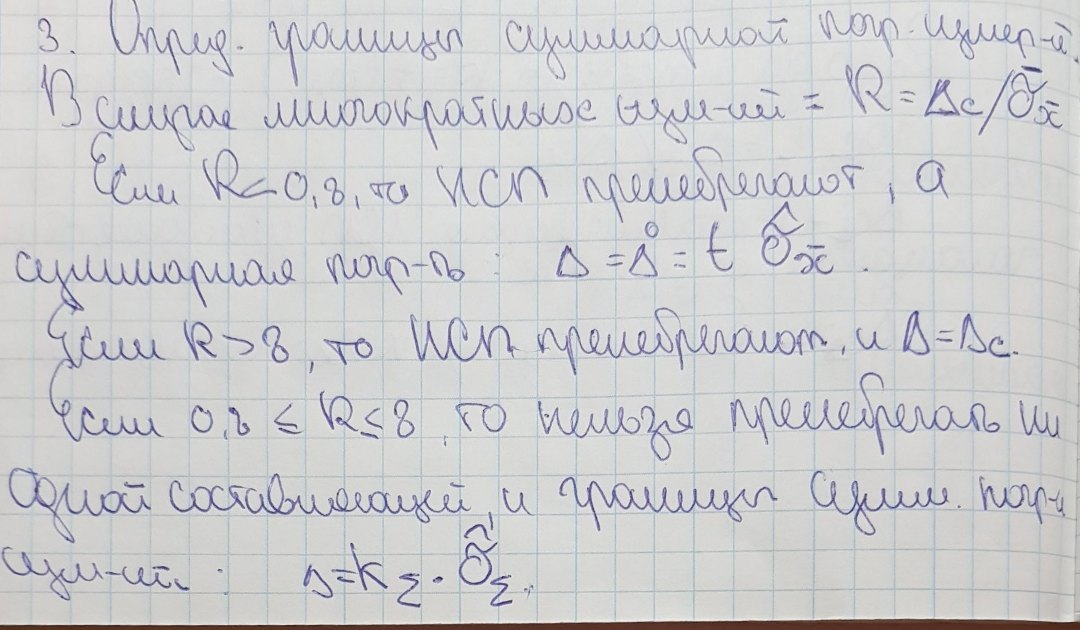 3. Опред. границы суммарной погр. измер-й.
В случае многократных изм-ий = R = Δc/σ̂x̄
Если R<0,8, то НСП пренебрегают, а
суммарная погр-ть : Δ = Δ̊ = t σ̂x̄.
Если R>8, то НСП пренебрегают, и Δ=Δc.
Если 0,8 ≤ R ≤ 8, то нельзя пренебрегать ни
одной составляющей, и границы сумм. погр-и
изм-ий : Δ=K_Σ · σ̂_Σ.